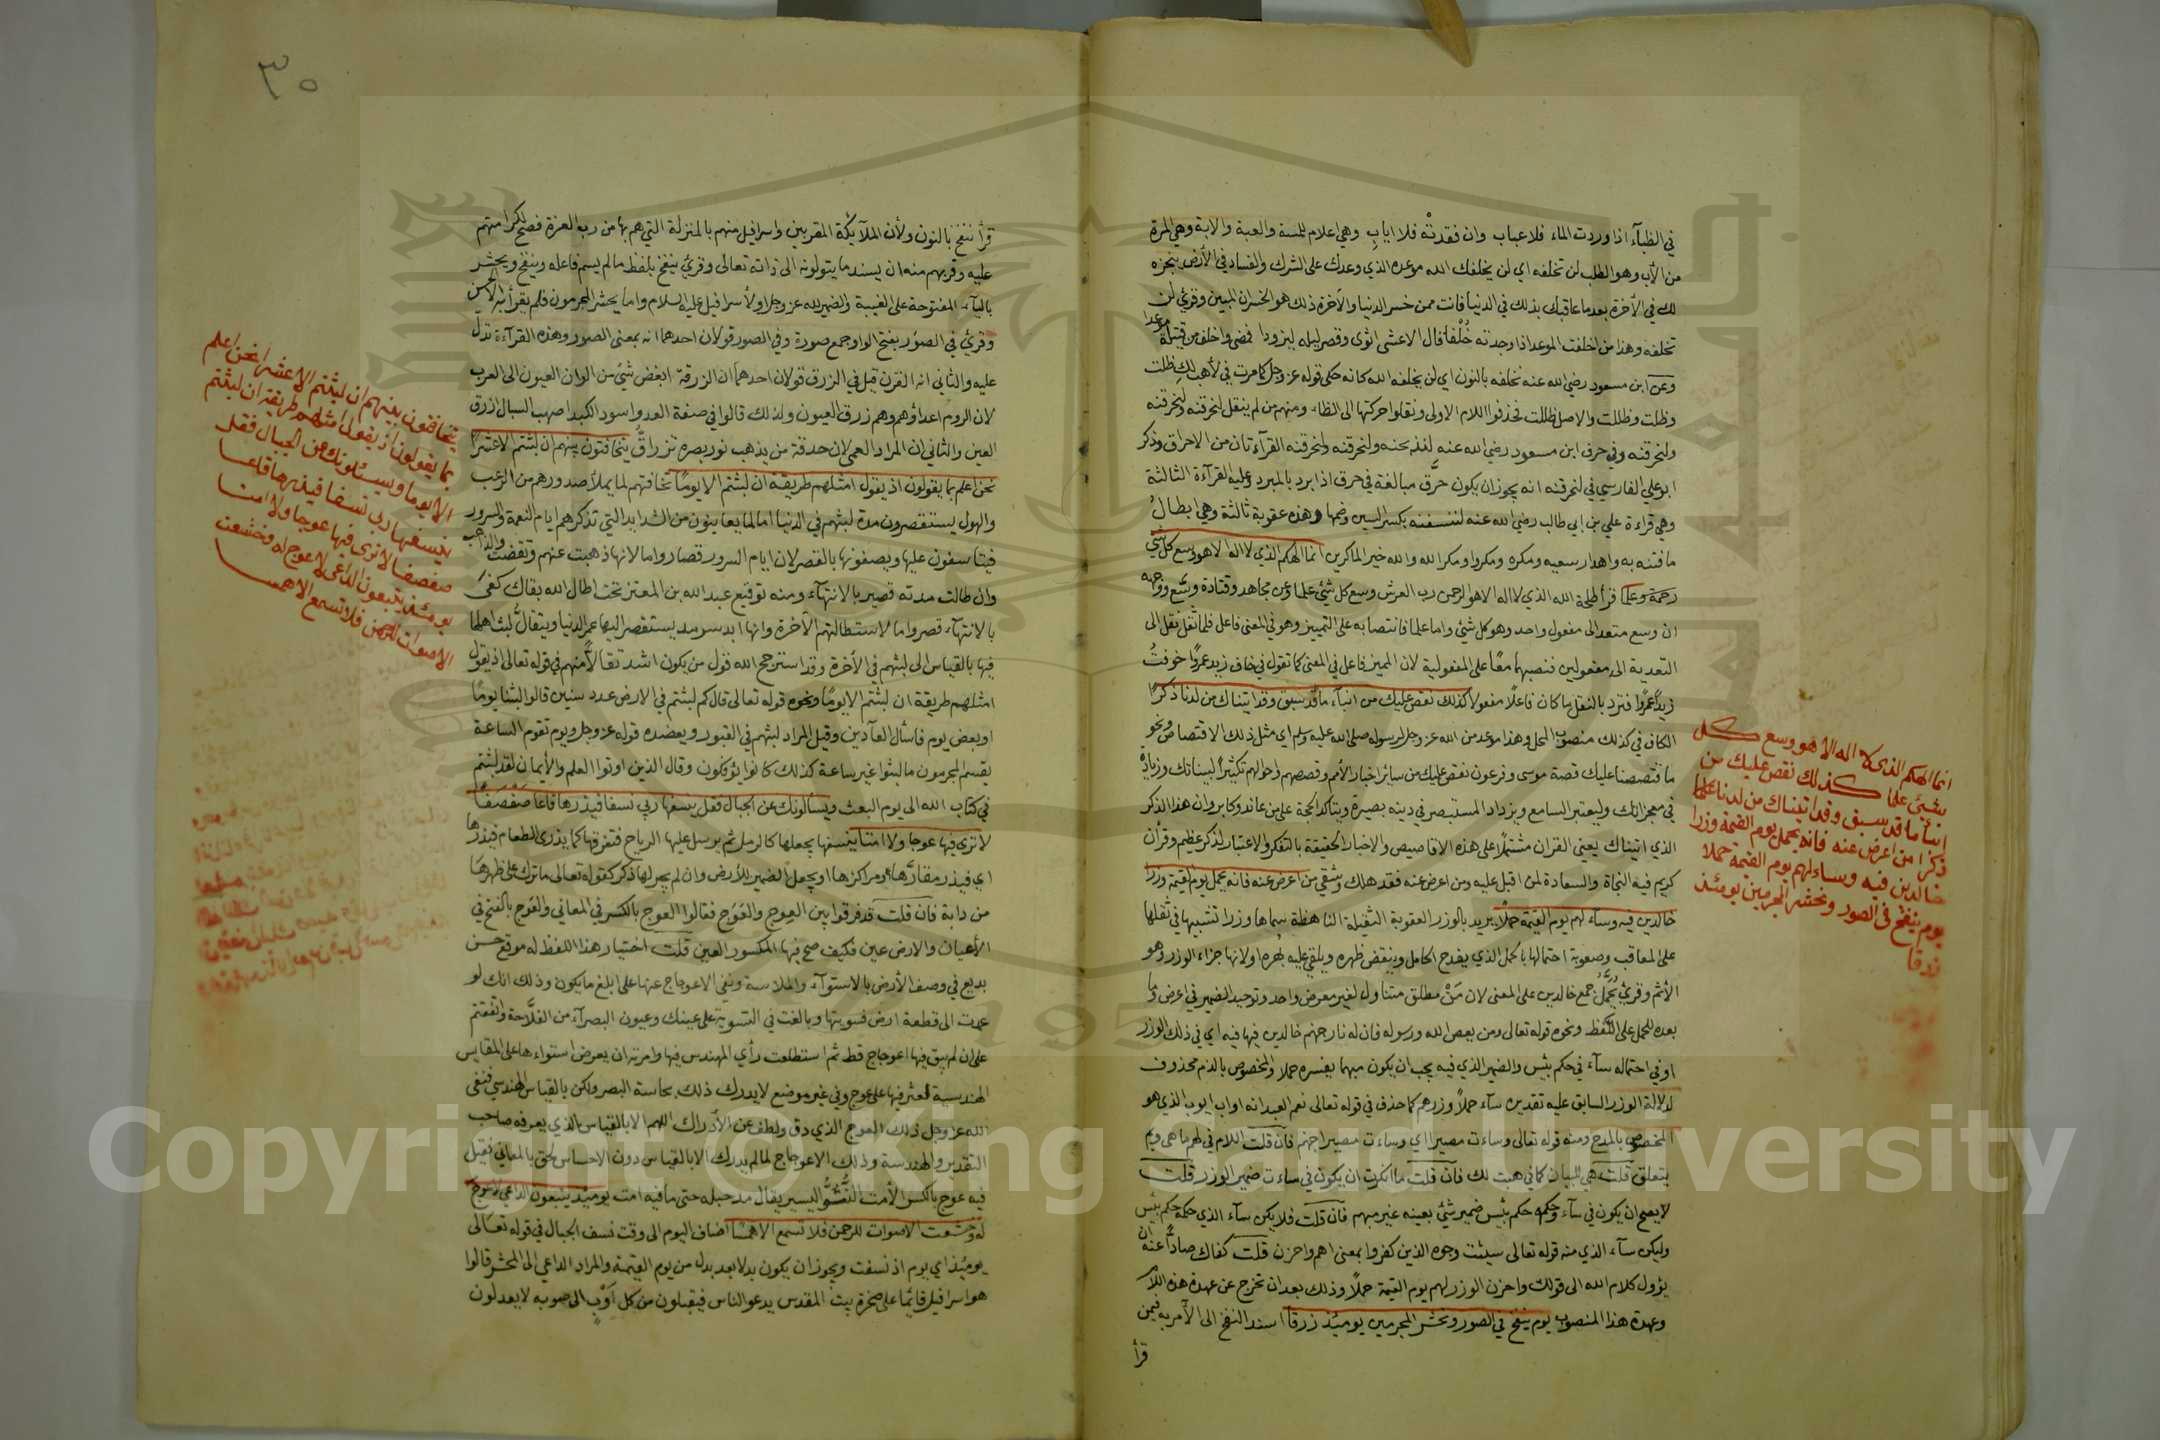 في الظبآء اذا وردت الماء فلا عباب وان فقدته فلا اباب وهي اعلام للمسة والعبة والابة وهي المرة
من الأب وهو الطلب لن تخلفه اي لن يخلفك الله موعده الذي وعدك على الشرك والفساد في الأرض ينجزه
لك في الآخرة بعد ما عاقبك بذلك في الدنيا فانت ممن خسر الدنيا والآخرة ذلك هو الخسران المبين وقرئ لن
تخلفه وهذا من اخلفت الموعد اذا وجدته خلفا قال الاعشى اثوى وقصر ليله ليزودا فمضى واخلف من قتيلة
موعدا
وعن ابن مسعود رضي الله عنه نخلفه بالنون اي لن يخلفه الله كانه حكى قوله عز وجل كما مر في لأهب لك ظلت
وظلت وظللت والاصل ظللت فحذفوا اللام الاولى ونقلوا حركتها الى الظاء ومنهم من لم ينقل لنحرقنه ولنحرقنه
ولنحرقنه وفي حرف ابن مسعود رضي الله عنه لنذبحنه ولنحرقنه ولنحرقنه القرآءتان من الاحراق وذكر
ابو علي الفارسي في لنحرقنه انه يجوز ان يكون حرّق مبالغة في حرق اذا برد بالمبرد وعليه القراءة الثالثة
وهي قراءة علي بن ابي طالب رضي الله عنه لننسفنه بكسر السين وضمها وهذه عقوبة ثالثة وهي ابطال
ما فتن به واهدار سعيه ومكره ومكروا ومكر الله والله خير الماكرين انما الهكم الذي لا اله الا هو وسع كل شئ
رحمة وعلما قرأ طلحة الله الذي لا اله الا هو الرحمن رب العرش وسع كل شئ علما وعن مجاهد وقتادة وسّع ووجهه
ان وسع متعد الى مفعول واحد وهو كل شئ واما علما فانتصابه على التمييز وهو في المعنى فاعل فلما ثقل نقل الى
التعدية الى مفعولين فنصبهما معا على المفعولية لان المميز فاعل في المعنى كما تقول في خاف زيد عمرا خوفت
زيدا عمرا فترد بالنقل ما كان فاعلا مفعولا كذلك نقص عليك من انبآء ما قد سبق وقد اتيناك من لدنا ذكرا
الكاف في كذلك منصوب المحل وهذا موعد من الله عز وجل لرسوله صلى الله عليه وسلم اي مثل ذلك الاقتصاص ونحو
ما قتصصنا عليك قصة موسى وفرعون نقص عليك من سائر اخبار الأمم وقصصهم واحوالهم تكثيرا لبيناتك وزيادة
في معجزاتك وليعتبر السامع ويزداد المستبصر في دينه بصيرة ويتاكد الحجة على من عاند وكابر وان هذا الذكر
الذي اتيناك يعني القران مشتملا على هذه الاقاصيص والاخبار الحقيقة بالتفكر والاعتبار لذكر عظيم وقرأن
كريم فيه النجاة والسعادة لمن اقبل عليه ومن اعرض عنه فقد هلك وشقي من اعرض عنه فانه يحمل يوم القيمة وزرا
خالدين فيه وسآء لهم يوم القيمة حملا يريد بالوزر العقوبة الثقيلة الباهظة سماها وزرا تشبيها في ثقلها
على المعاقب وصعوبة احتمالها بالحمل الذي يفدح الحامل وينقض ظهره ويلقي عليه بهره او لانها جزاء الوزر وهو
الأثم وقرئ يحمّل جمع خالدين على المعنى لان من مطلق متناول لغير معرض واحد وتوحيد الضمير في اعرض وما
بعده للحمل على اللفظ ونحوه قوله تعالى ومن يعص الله ورسوله فان له نار جهنم خالدين فيها فيه اي في ذلك الوزر
او في احتماله سآء في حكم بئس والضمير الذي فيه يجب ان يكون مبهما يفسره حملا والمخصوص بالذم محذوف
لدلالة الوزر السابق عليه تقديره سآء حملا وزرهم كما حذف في قوله تعالى نعم العبد انه اواب ايوب الذي هو
المخصوص بالمدح ومنه قوله تعالى وساءت مصيرا اي وساءت مصيرا جهنم فان قلت اللام في لهم ما هي وبم
يتعلق قلت هي للبيان كما في هيت لك فان قلت ما انكرت ان يكون في ساءت ضمير الوزر قلت
لا يصح ان يكون في سآء وحكمه حكم بئس ضمير شئ بعينه غير مبهم فان قلت فلا يكن سآء الذي حكمه حكم بئس
وليكن سآء الذي منه قوله تعالى سيئت وجوه الذين كفروا بمعنى اهم واحزن قلت كفاك صادّا عنه ان
يؤول كلام الله الى قولك واحزن الوزر لهم يوم القيمة حملا وذلك بعد ان تخرج عن عهدة هذه اللام
وعهدة هذا المنصوب يوم ينفخ في الصور ونحشر المجرمين يومئذ زرقا اسند النفخ الى الآمر به فيمن
قرأ
انما الهكم الذى لا اله الا هو وسع كل
شئ علما كذلك نقص عليك من
انباء ما قد سبق وقد اتيناك من لدنا علما
ذكرا من اعرض عنه فانه يحمل يوم القيمة وزرا
خالدين فيه وساء لهم يوم القيمة حملا
يوم ينفخ فى الصور ونحشر المجرمين يومئذ
زرقا
٣٥
قرأ ننفخ بالنون ولأن الملآئكة المقربين واسرافيل منهم بالمنزلة التي هم بها من رب العزة فصح لكرامتهم
عليه وقربهم منه ان يسند ما يتولونه الى ذاته تعالى وقرئ ينفخ بلفظ ما لم يسم فاعله وينفخ ويحشر
باليآء المفتوحة على الغيبة والضمير لله عز وجل او لأسرافيل عليه السلام واما يحشر المجرمون فلم يقرأ به الا الحسن
وقرئ في الصوَر بفتح الواو جمع صورة وفي الصور قولان احدهما انه بمعنى الصور وهذه القرآءة تدل
عليه والثاني انه القرن قيل في الزرق قولان احدهما ان الزرقة ابغض شئ من الوان العيون الى العرب
لان الروم اعداؤهم وهم زرق العيون ولذلك قالوا في صفة العدو اسود الكبد اصهب السبال ازرق
العين والثاني ان المراد العمى لان حدقة من يذهب نور بصره تزراق يتخافتون بينهم ان لبثتم الا عشرا
نحن اعلم بما يقولون اذ يقول امثلهم طريقة ان لبثتم الا يوما تخافتهم لما يملأ صدورهم من الرعب
والهول يستقصرون مدة لبثهم في الدنيا اما لما يعاينون من الشدايد التي تذكرهم ايام النعمة والسرور
فيتأسفون عليها ويصفونها بالقصر لان ايام السرور قصار واما لانها ذهبت عنهم وتقضت والذاهب
وان طالت مدته قصير بالانتهاء ومنه توقيع عبد الله بن المعتز تحت اطال الله بقاك كفى
بالانتهآء قصرا واما لاستطالتهم الآخرة وانها ابد سرمد يستقصر اليها عمر الدنيا ويتقالّ لبث اهلها
فيها بالقياس الى لبثهم في الآخرة وقد استرجح الله قول من يكون اشد تقالّا منهم في قوله تعالى اذ يقول
امثلهم طريقة ان لبثتم الا يوما ونحوه قوله تعالى قال كم لبثتم في الارض عدد سنين قالوا لبثنا يوما
او بعض يوم فاسأل العآدين وقيل المراد لبثهم في القبور ويعضده قوله عز وجل ويوم تقوم الساعة
يقسم المجرمون ما لبثوا غير ساعة كذلك كانوا يؤفكون وقال الذين اوتوا العلم والأيمان لقد لبثتم
في كتاب الله الى يوم البعث ويسألونك عن الجبال فقل ينسفها ربي نسفا فيذرها قاعا صفصفا
لا ترى فيها عوجا ولا امتا ينسفها يجعلها كالرمل ثم يرسل عليها الرياح فتفرقها كما يذرى الطعام فيذرها
اي فيذر مقارّها ومراكزها او يجعل الضمير للأرض وان لم يجر لها ذكر كقوله تعالى ما ترك على ظهرها
من دابة فان قلت قد فرقوا بين العِوج والعَوج فقالوا العوج بالكسر في المعاني والعوج بالفتح في
الأعيان والارض عين فكيف صح فيها المكسور العين قلت اختيار هذا اللفظ له موقع حسن
بديع في وصف الأرض بالاستوآء والملاسة ونفي الاعوجاج عنها على ابلغ ما يكون وذلك انك لو
عمدت الى قطعة ارض فسويتها وبالغت في التسوية على عينك وعيون البصرآء من الفلّاحة واتفقتم
على ان لم يبق فيها اعوجاج قط ثم استطلعت رأي المهندس فيها وامرته ان يعرض استواءها على المقايس
الهندسية لعثر فيها على عوج وفي غير موضع لا يدرك ذلك بحاسة البصر ولكن بالقياس الهندسي فنفى
الله عز وجل ذلك العوج الذي دق ولطف عن الأدراك اللهم الا بالقياس الذي يعرفه صاحب
التقدير والهندسة وذلك الاعوجاج لما لم يدرك الا بالقياس دون الاحساس لحق بالمعاني فقيل
فيه عوج بالكسر الأمت النتُوّ اليسير يقال مد حبله حتى ما فيه امت يومئذ يتبعون الداعي لا عوج
له وخشعت الاصوات للرحمن فلا تسمع الا همسا اضاف اليوم الى وقت نسف الجبال في قوله تعالى
يومئذ اي يوم اذ نسفت ويجوز ان يكون بدلا بعد بدل من يوم القيمة والمراد الداعي الى المحشر قالوا
هو اسرافيل قائما على صخرة بيت المقدس يدعو الناس فيقبلون من كل اوب الى صوبه لا يعدلون
يتخافتون بينهم ان لبثتم الا عشرا نحن اعلم
بما يقولون اذ يقول امثلهم طريقة ان لبثتم
الا يوما ويسئلونك عن الجبال فقل
ينسفها ربى نسفا فيذرها قاعا
صفصفا لا ترى فيها عوجا ولا امتا
يومئذ يتبعون الداعى لا عوج له وخشعت
الاصوات للرحمن فلا تسمع الا همسا
Copyright © King Saud University
1957